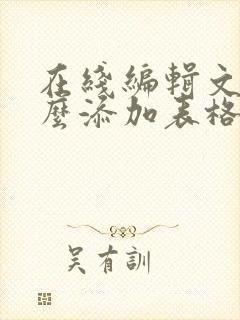 在綫編輯文
麼添加表格
吴有訓